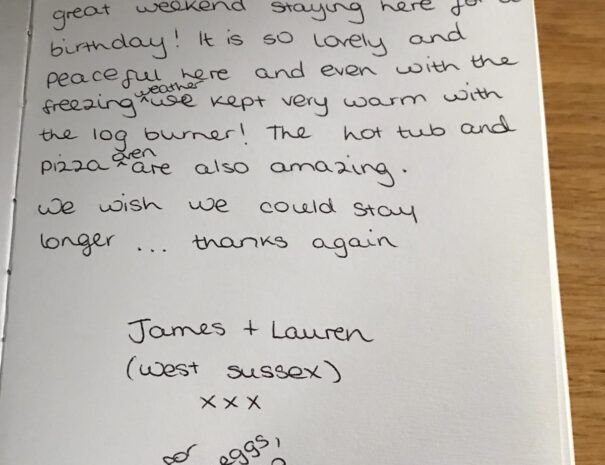 great weekend staying here for a
birthday! It is so lovely and
peaceful here and even with the
weather
freezing ^ use kept very warm with
the log burner! The hot tub and
oven
pizza ^ are also amazing.
we wish we could stay
longer ... thanks again
James + Lauren
(West Sussex)
x x x
eggs,